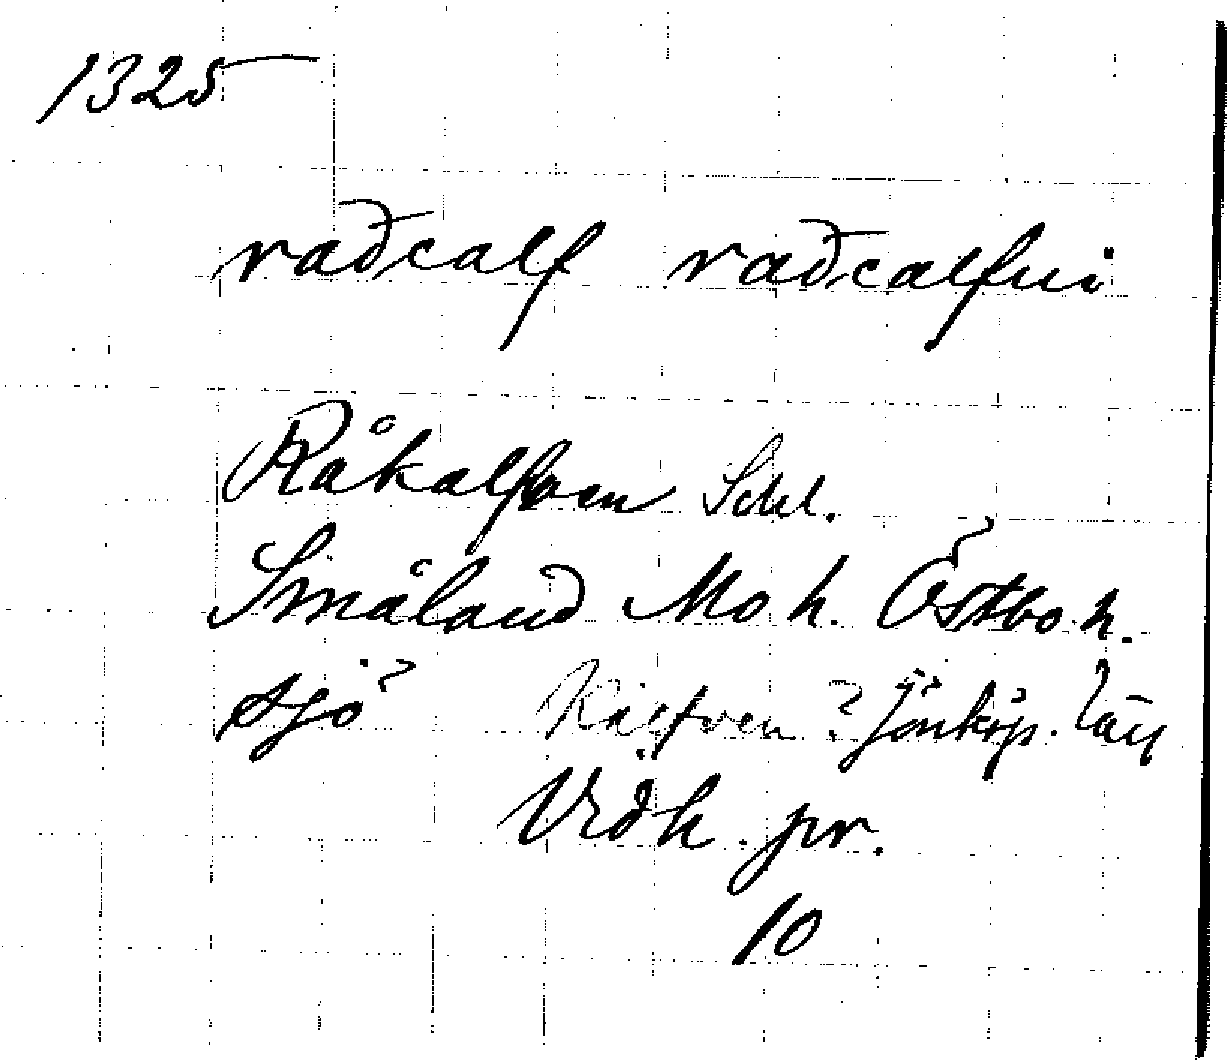 1325
raðcalf raðcalfui
Råkalfven Schl.
Småland Mo h. Östbo h.
sjö? Kalfven? Jönköp. län
Vidh. pr.
10